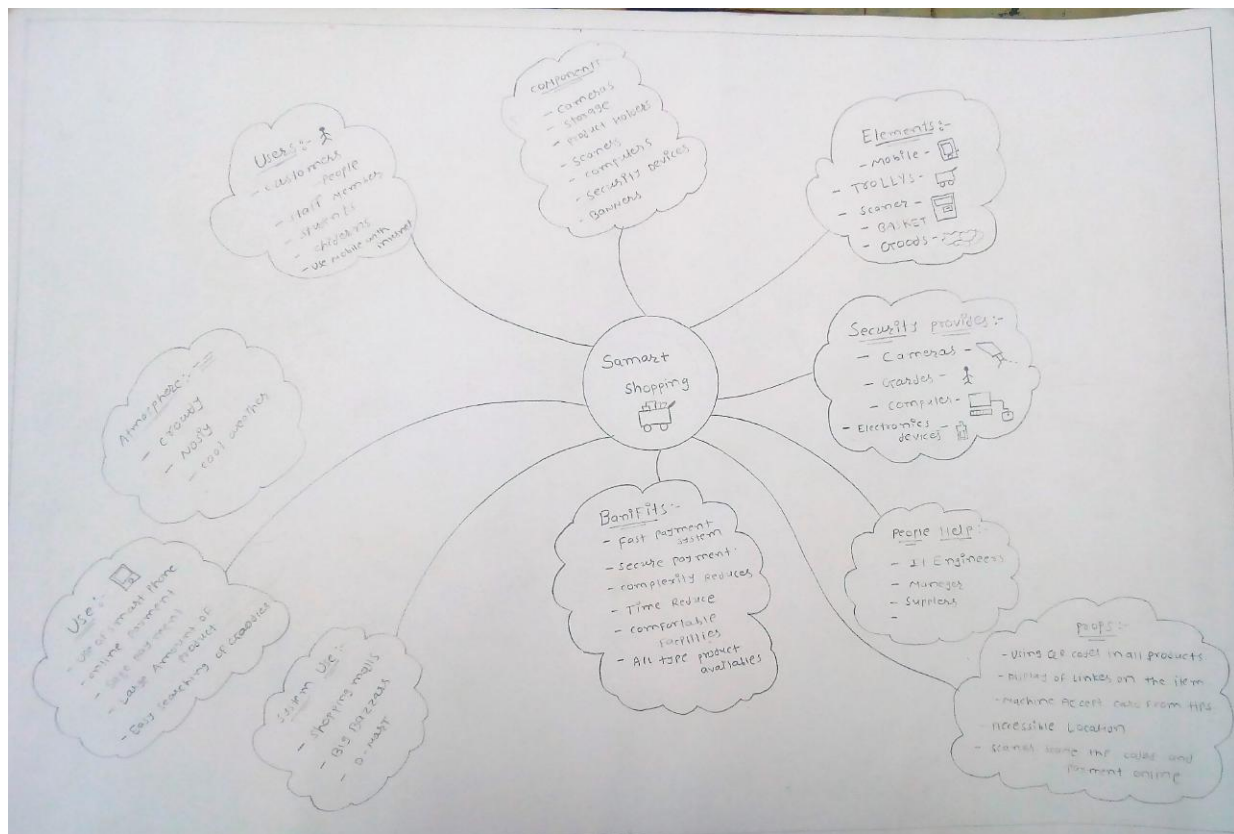 Samart
Shopping
Users:-
- Customers
- People
- Staff Member
- Students
- Childerns
- Use Mobile with
internet
Components
- Cameras
- Storage
- Product Holders
- Scaners
- Computers
- Security Devices
- BANNERS
Elements:-
- Mobile -
- TROLLYS -
- Scaner -
- BASKET
- Goods -
Security provides:-
- Cameras -
- Gardes -
- Computer -
- Electronics
devices -
People Help:-
- IT Engineers
- Manager
- Suppliers
-
Props:-
- Using QR codes in all products
- of Linkes on the item
- Machine Accept from
- Accessible Location
- Scaner the codes and
Payment online
BaniFits:-
- Fast Payment
System
- Secure Payment
- Complexity Reduces
- Time Reduce
- Comfortable
Facilities
- All type product
availables
System Use:-
- Shopping malls
- BIG BAZZARS
- D-Mart
Use:-
- Use of Smart Phone
- Online Payment
- Large Amount of
Product
- Easy Searching of
Atmosphere:-
- Crowdy
- Nosiy
- Cool weather